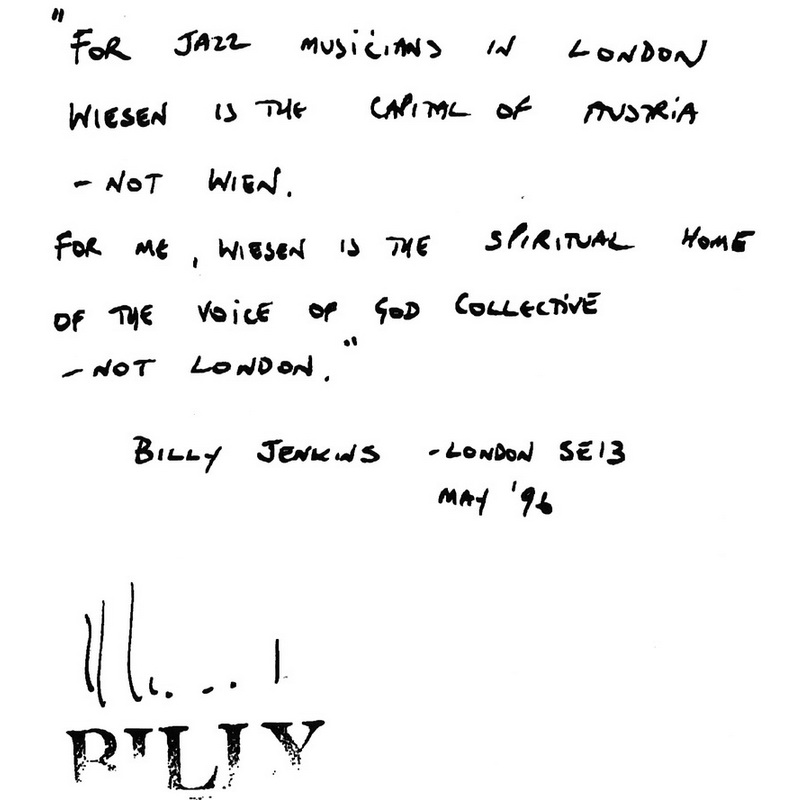 "FOR JAZZ MUSICIANS IN LONDON
WIESEN IS THE CAPITAL OF AUSTRIA
- NOT WIEN.
FOR ME, WIESEN IS THE SPIRITUAL HOME
OF THE VOICE OF GOD COLLECTIVE
- NOT LONDON."
BILLY JENKINS - LONDON SE13
MAY '96
BILLY